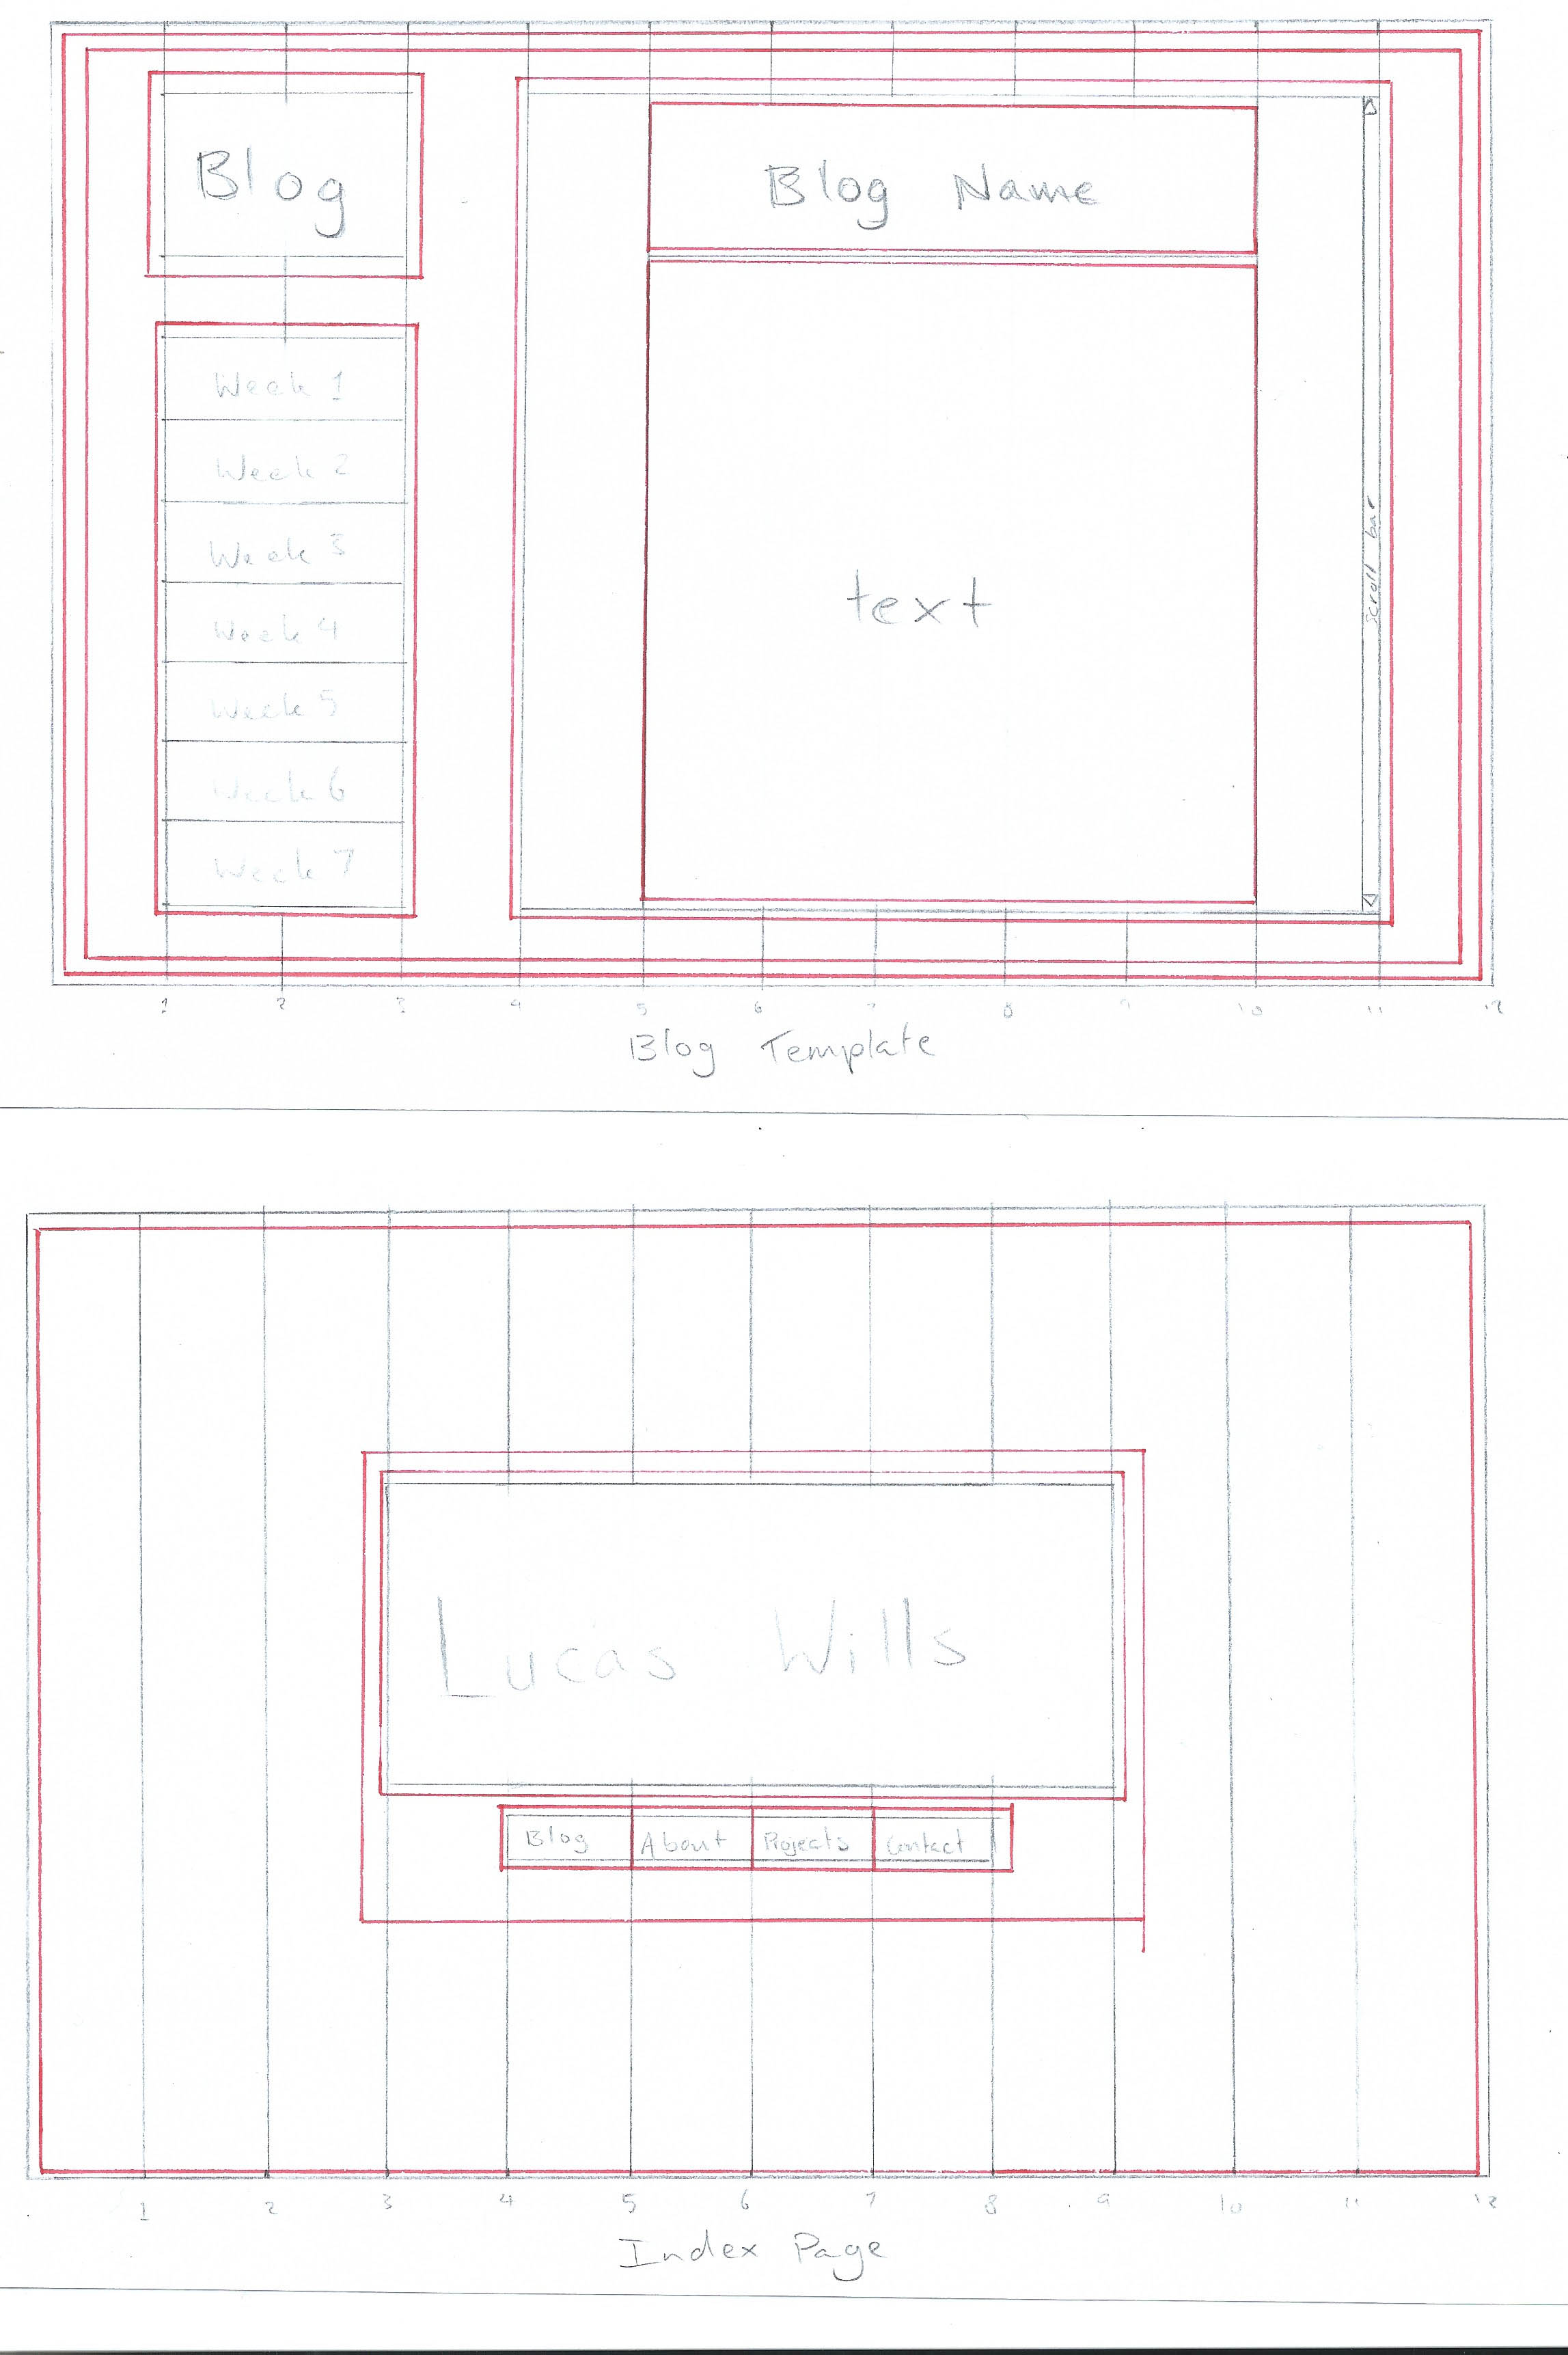 Blog
Blog Name
Week 1
Week 2
Week 3
Week 4
Week 5
Week 6
Week 7
text
scroll bar
1 2 3 4 5 6 7 8 9 10 11 12
Blog Template
Lucas Wills
Blog About Projects Contact
1 2 3 4 5 6 7 8 9 10 11 12
Index Page